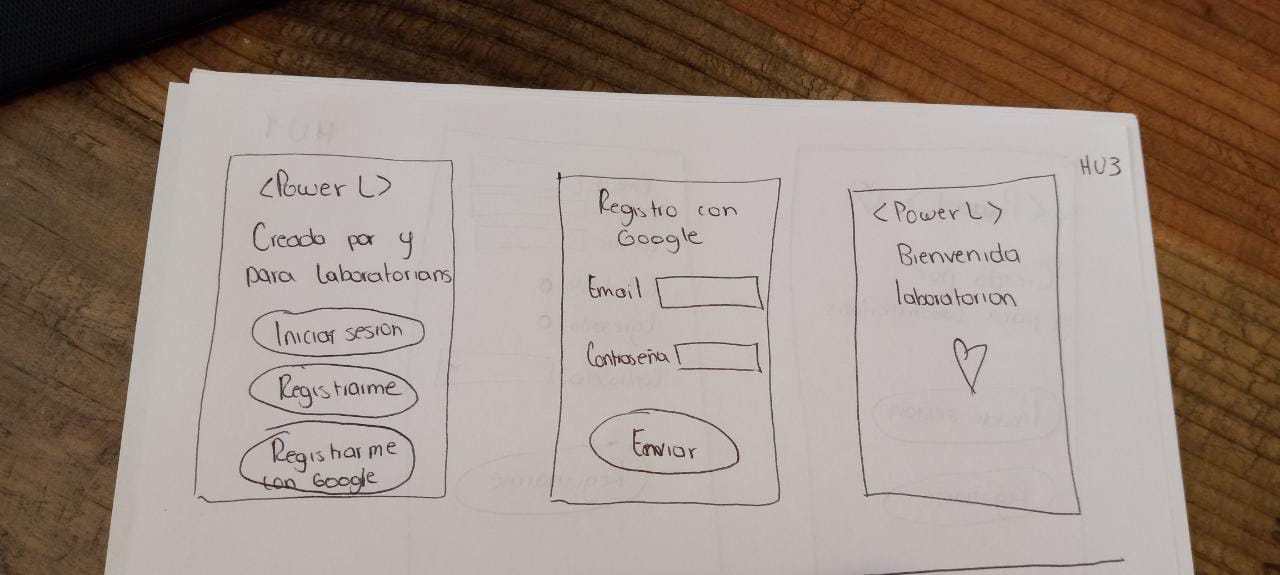 HU3
<Power L>
Creado por y
para laboratorians
Iniciar sesion
Registrarme
Registrarme
con Google
Registro con
Google
Email
Contraseña
Enviar
<Power L>
Bienvenida
laboratorian